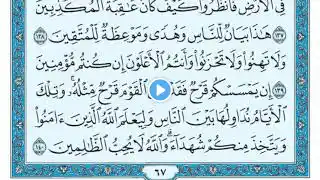 فِى ٱلْأَرْضِ فَٱنظُرُوا۟ كَيْفَ كَانَ عَـٰقِبَةُ ٱلْمُكَذِّبِينَ
١٣٧ هَـٰذَا بَيَانٌ لِّلنَّاسِ وَهُدًى وَمَوْعِظَةٌ لِّلْمُتَّقِينَ ١٣٨
وَلَا تَهِنُوا۟ وَلَا تَحْزَنُوا۟ وَأَنتُمُ ٱلْأَعْلَوْنَ إِن كُنتُم مُّؤْمِنِينَ
١٣٩ إِن يَمْسَسْكُمْ قَرْحٌ فَقَدْ ٱلْقَوْمَ قَرْحٌ مِّثْلُهُۥ وَتِلْكَ
ٱلْأَيَّامُ نُدَاوِلُهَا بَيْنَ ٱلنَّاسِ وَلِيَعْلَمَ ٱللَّهُ ٱلَّذِينَ ءَامَنُوا۟
وَيَتَّخِذَ مِنكُمْ شُهَدَآءَ وَٱللَّهُ لَا يُحِبُّ ٱلظَّـٰلِمِينَ ١٤٠
٦٧